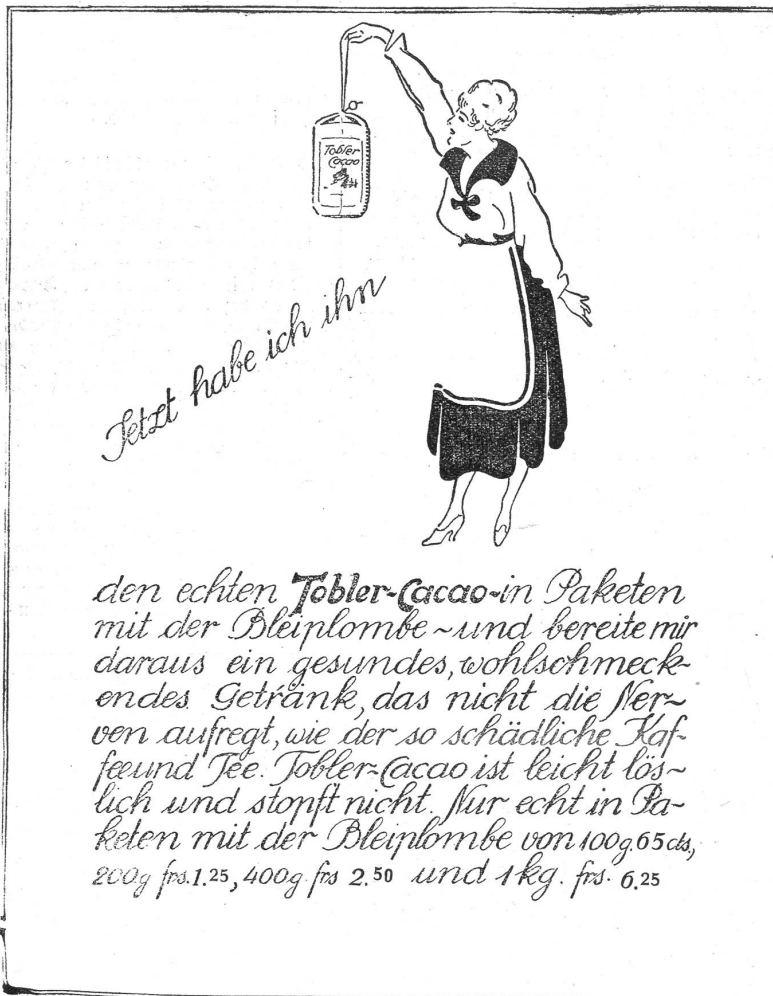 Tobler
Cacao
Jetzt habe ich ihn
den echten Tobler-Cacao~in Paketen
mit der Bleiplombe~und bereite mir
daraus ein gesundes, wohlschmeck-
endes Getränk, das nicht die Ner~
ven aufregt, wie der so schädliche Kaf-
fee und Tee. Tobler-Cacao ist leicht lös~
lich und stopft nicht. Nur echt in Pa-
keten mit der Bleiplombe von 100g. 65 cts,
200g frs. 1.25, 400g. frs 2.50 und 1 kg. frs. 6.25